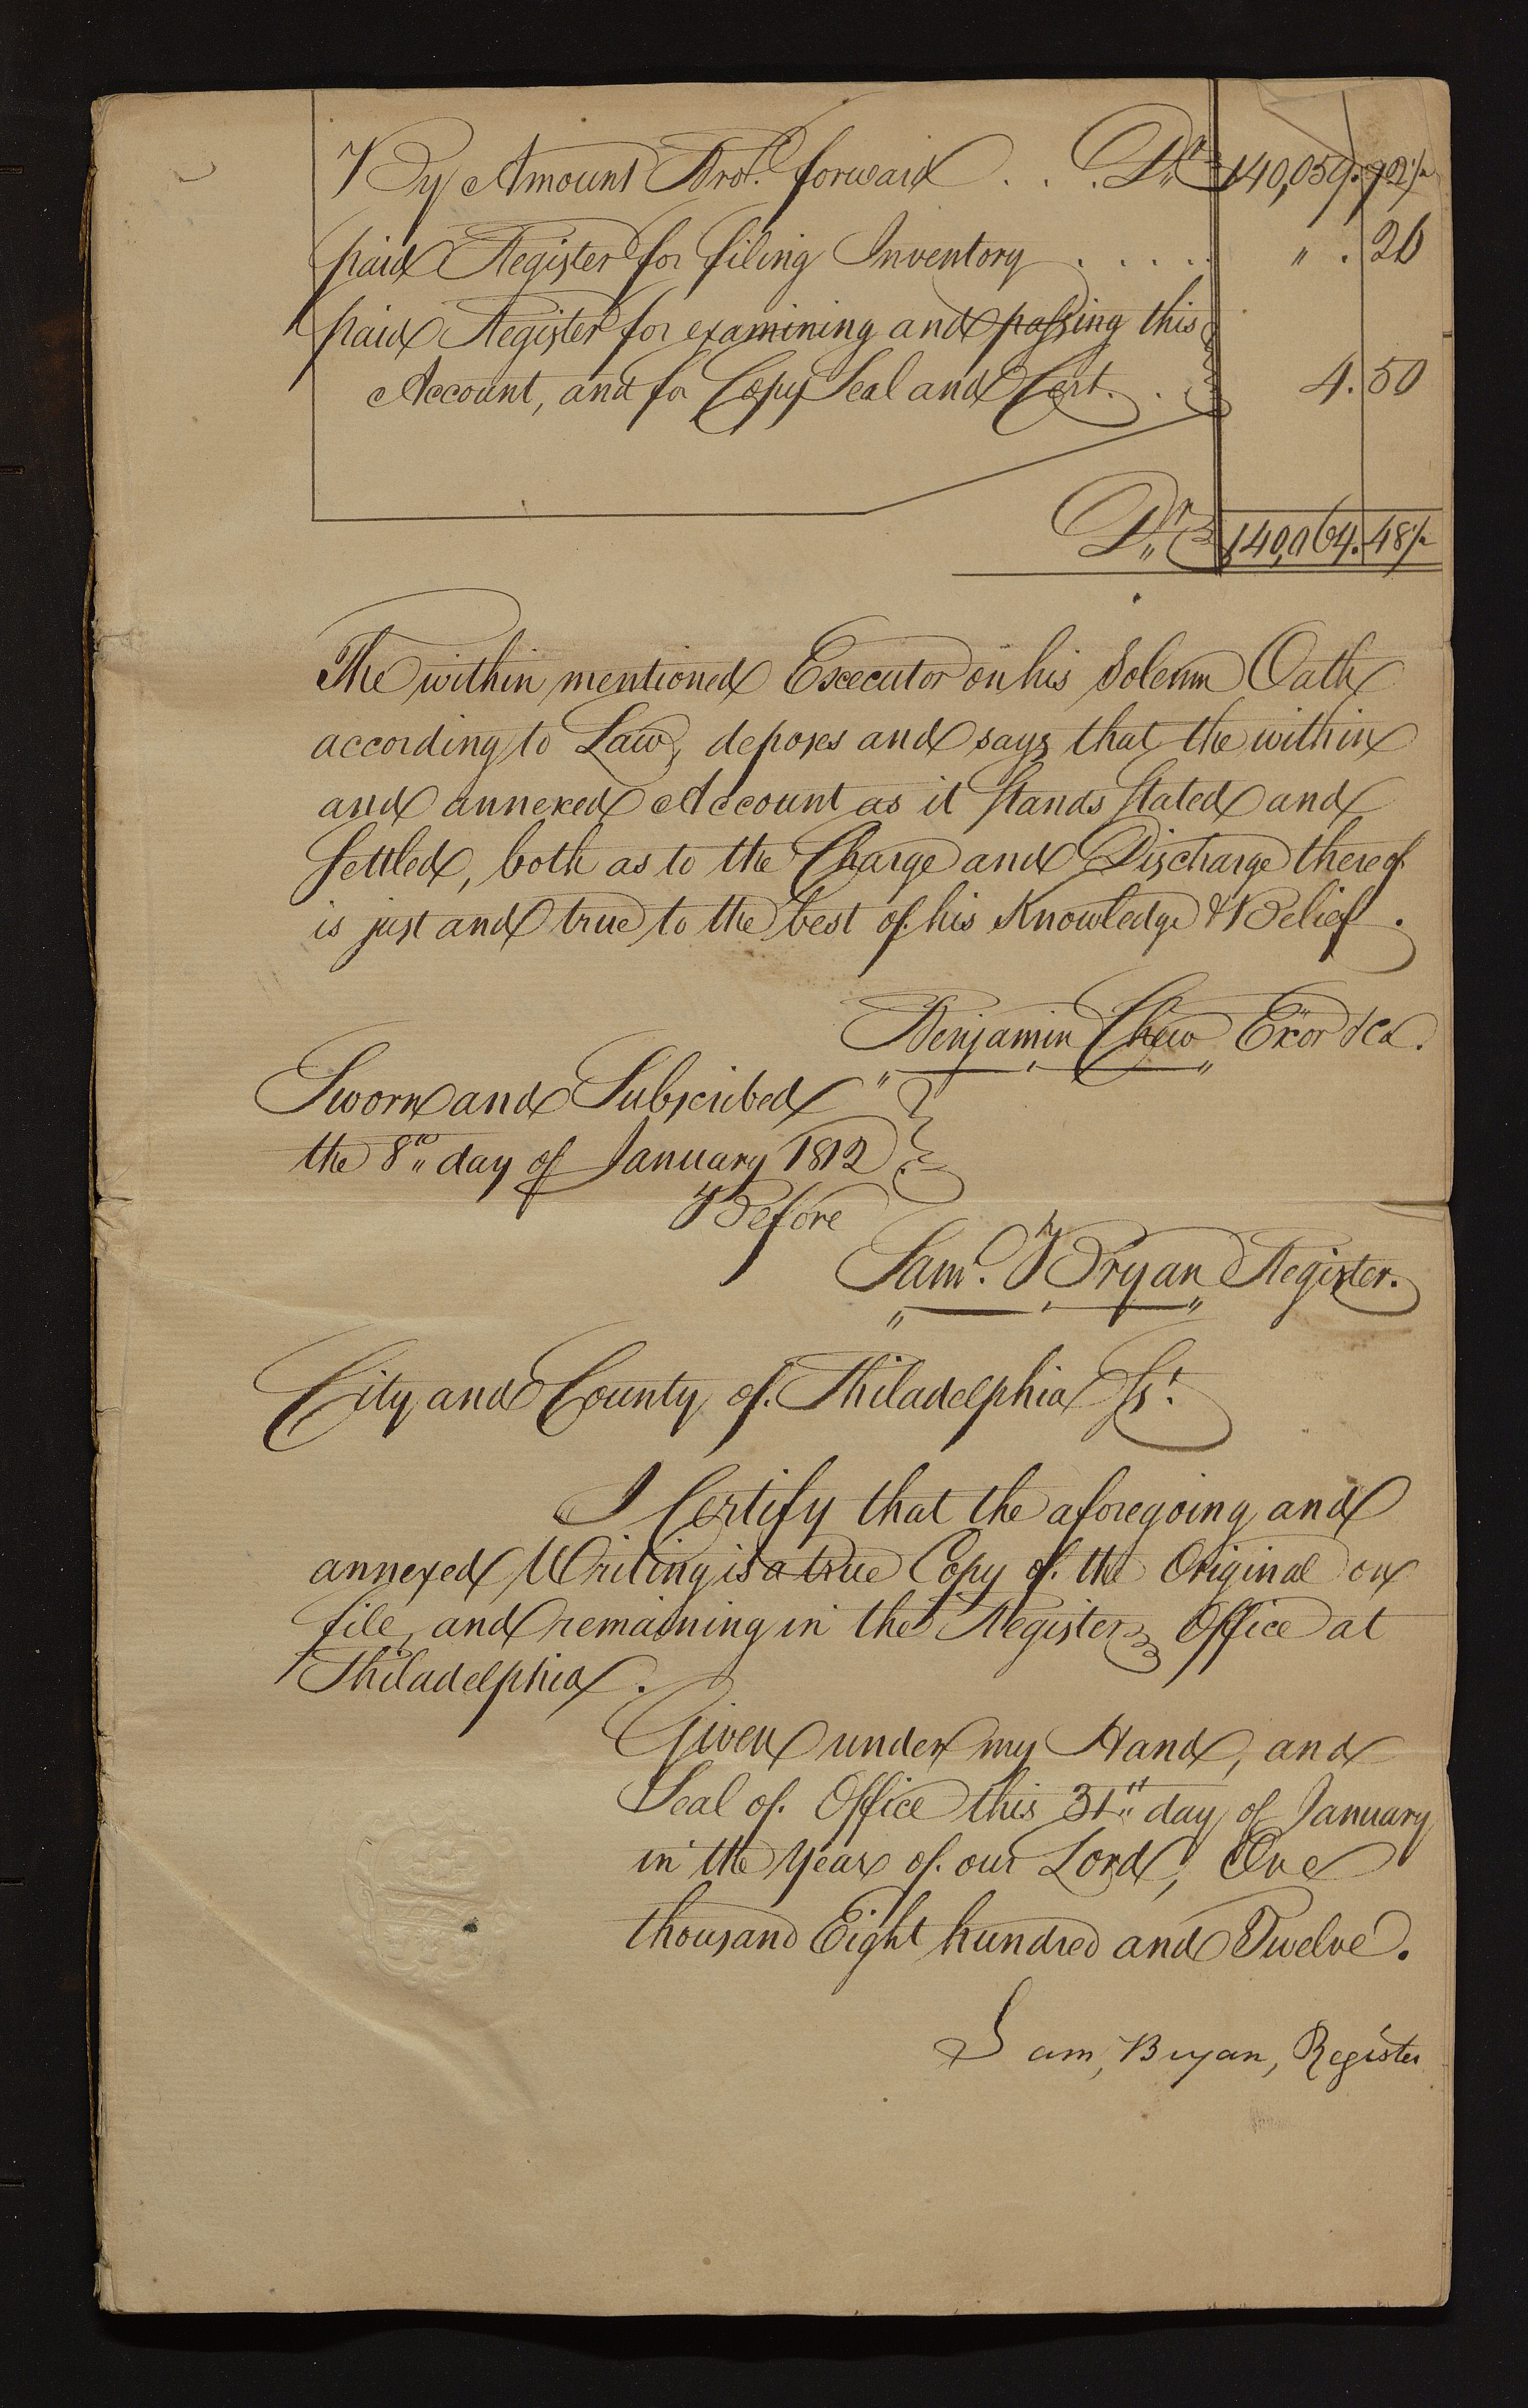 By Amount Brot. forward . . . Drs 140,059.72½
paid Register for filing Inventory . . . . . " . 26
paid Register for examining and passing this
Account, and for Copy Seal and Cert. . 4.50
Drs 140,064.48½
The within mentioned Executor on his Solemn Oath
according to Law, deposes and says that the within
and annexed Account as it Stands Stated and
Settled, both as to the Charge and Discharge thereof
is just and true to the best of his Knowledge & Belief.
Benjamin Chew Exor &ca.
Sworn and Subscribed
the 8th day of January 1812
Before
Saml. Bryan Register.
City and County of Philadelphia Ss.
I Certify that the aforegoing and
annexed Writing is a true Copy of the Original on
file, and remaining in the Registers Office at
Philadelphia.
Given under my Hand, and
Seal of Office this 31st day of January
in the Year of our Lord, One
thousand Eight hundred and Twelve.
Sam, Bryan, Register